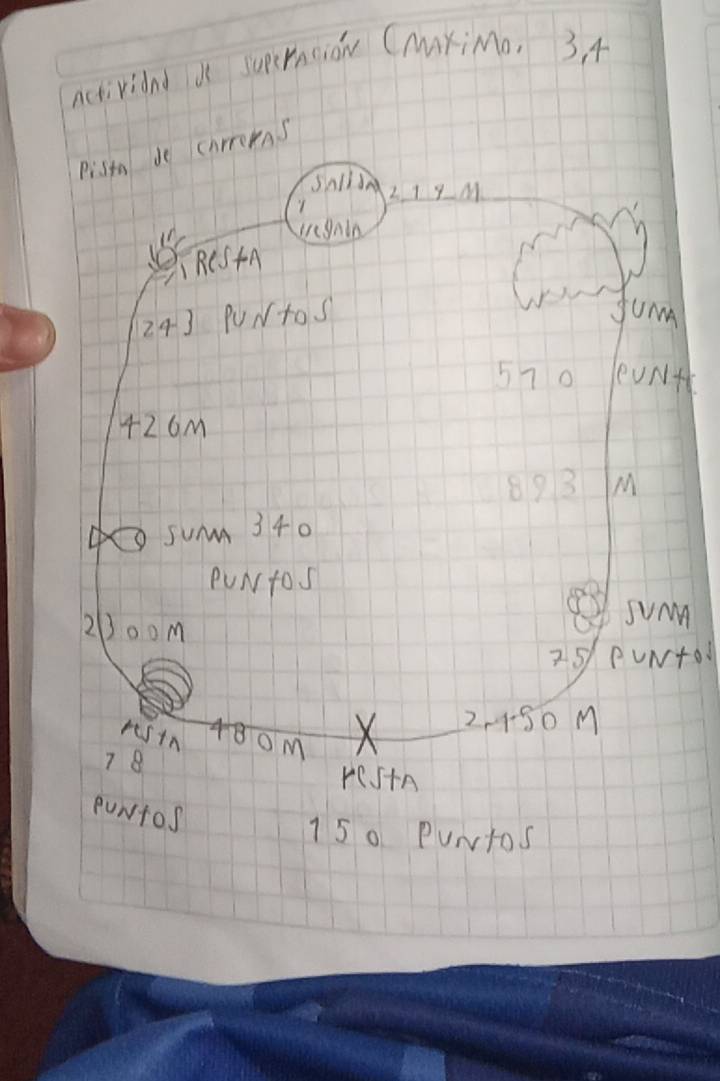 Actividad de superación (Máximo. 3,4
Pista de carreras
Salida
y
llegada
RESTA
243 PUNtOS
SUMA
570 PUNt
426M
893 M
SUMA 340
PUNtOS
SUMA
75 PUNtOS
2300M
resta
78
PUNtOS
480M
2,150 M
X
restA
150 PUNtOS